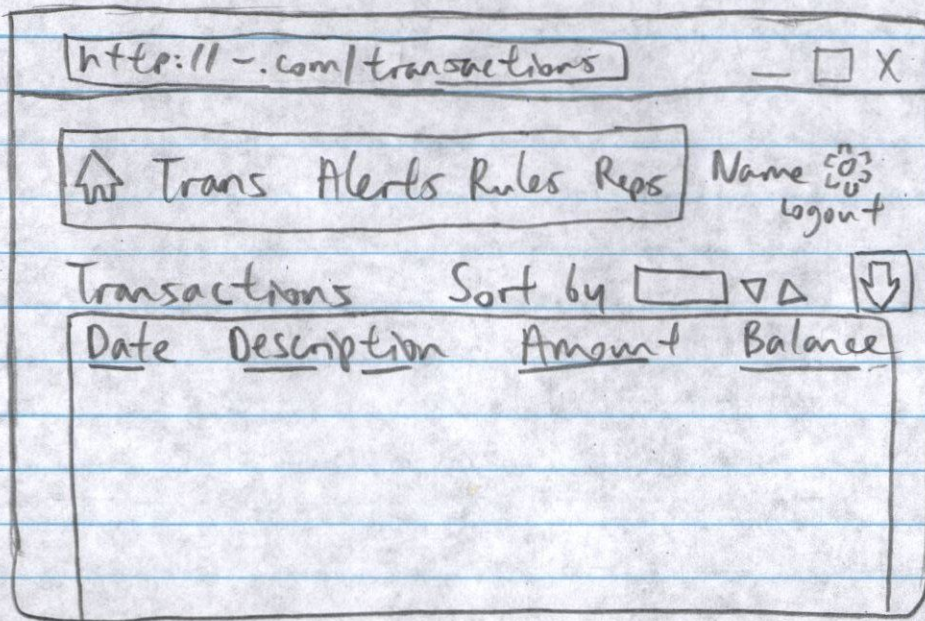 http://-.com/transactions X
Trans Alerts Rules Reps Name
Logout
Transactions Sort by
Date Description Amount Balance